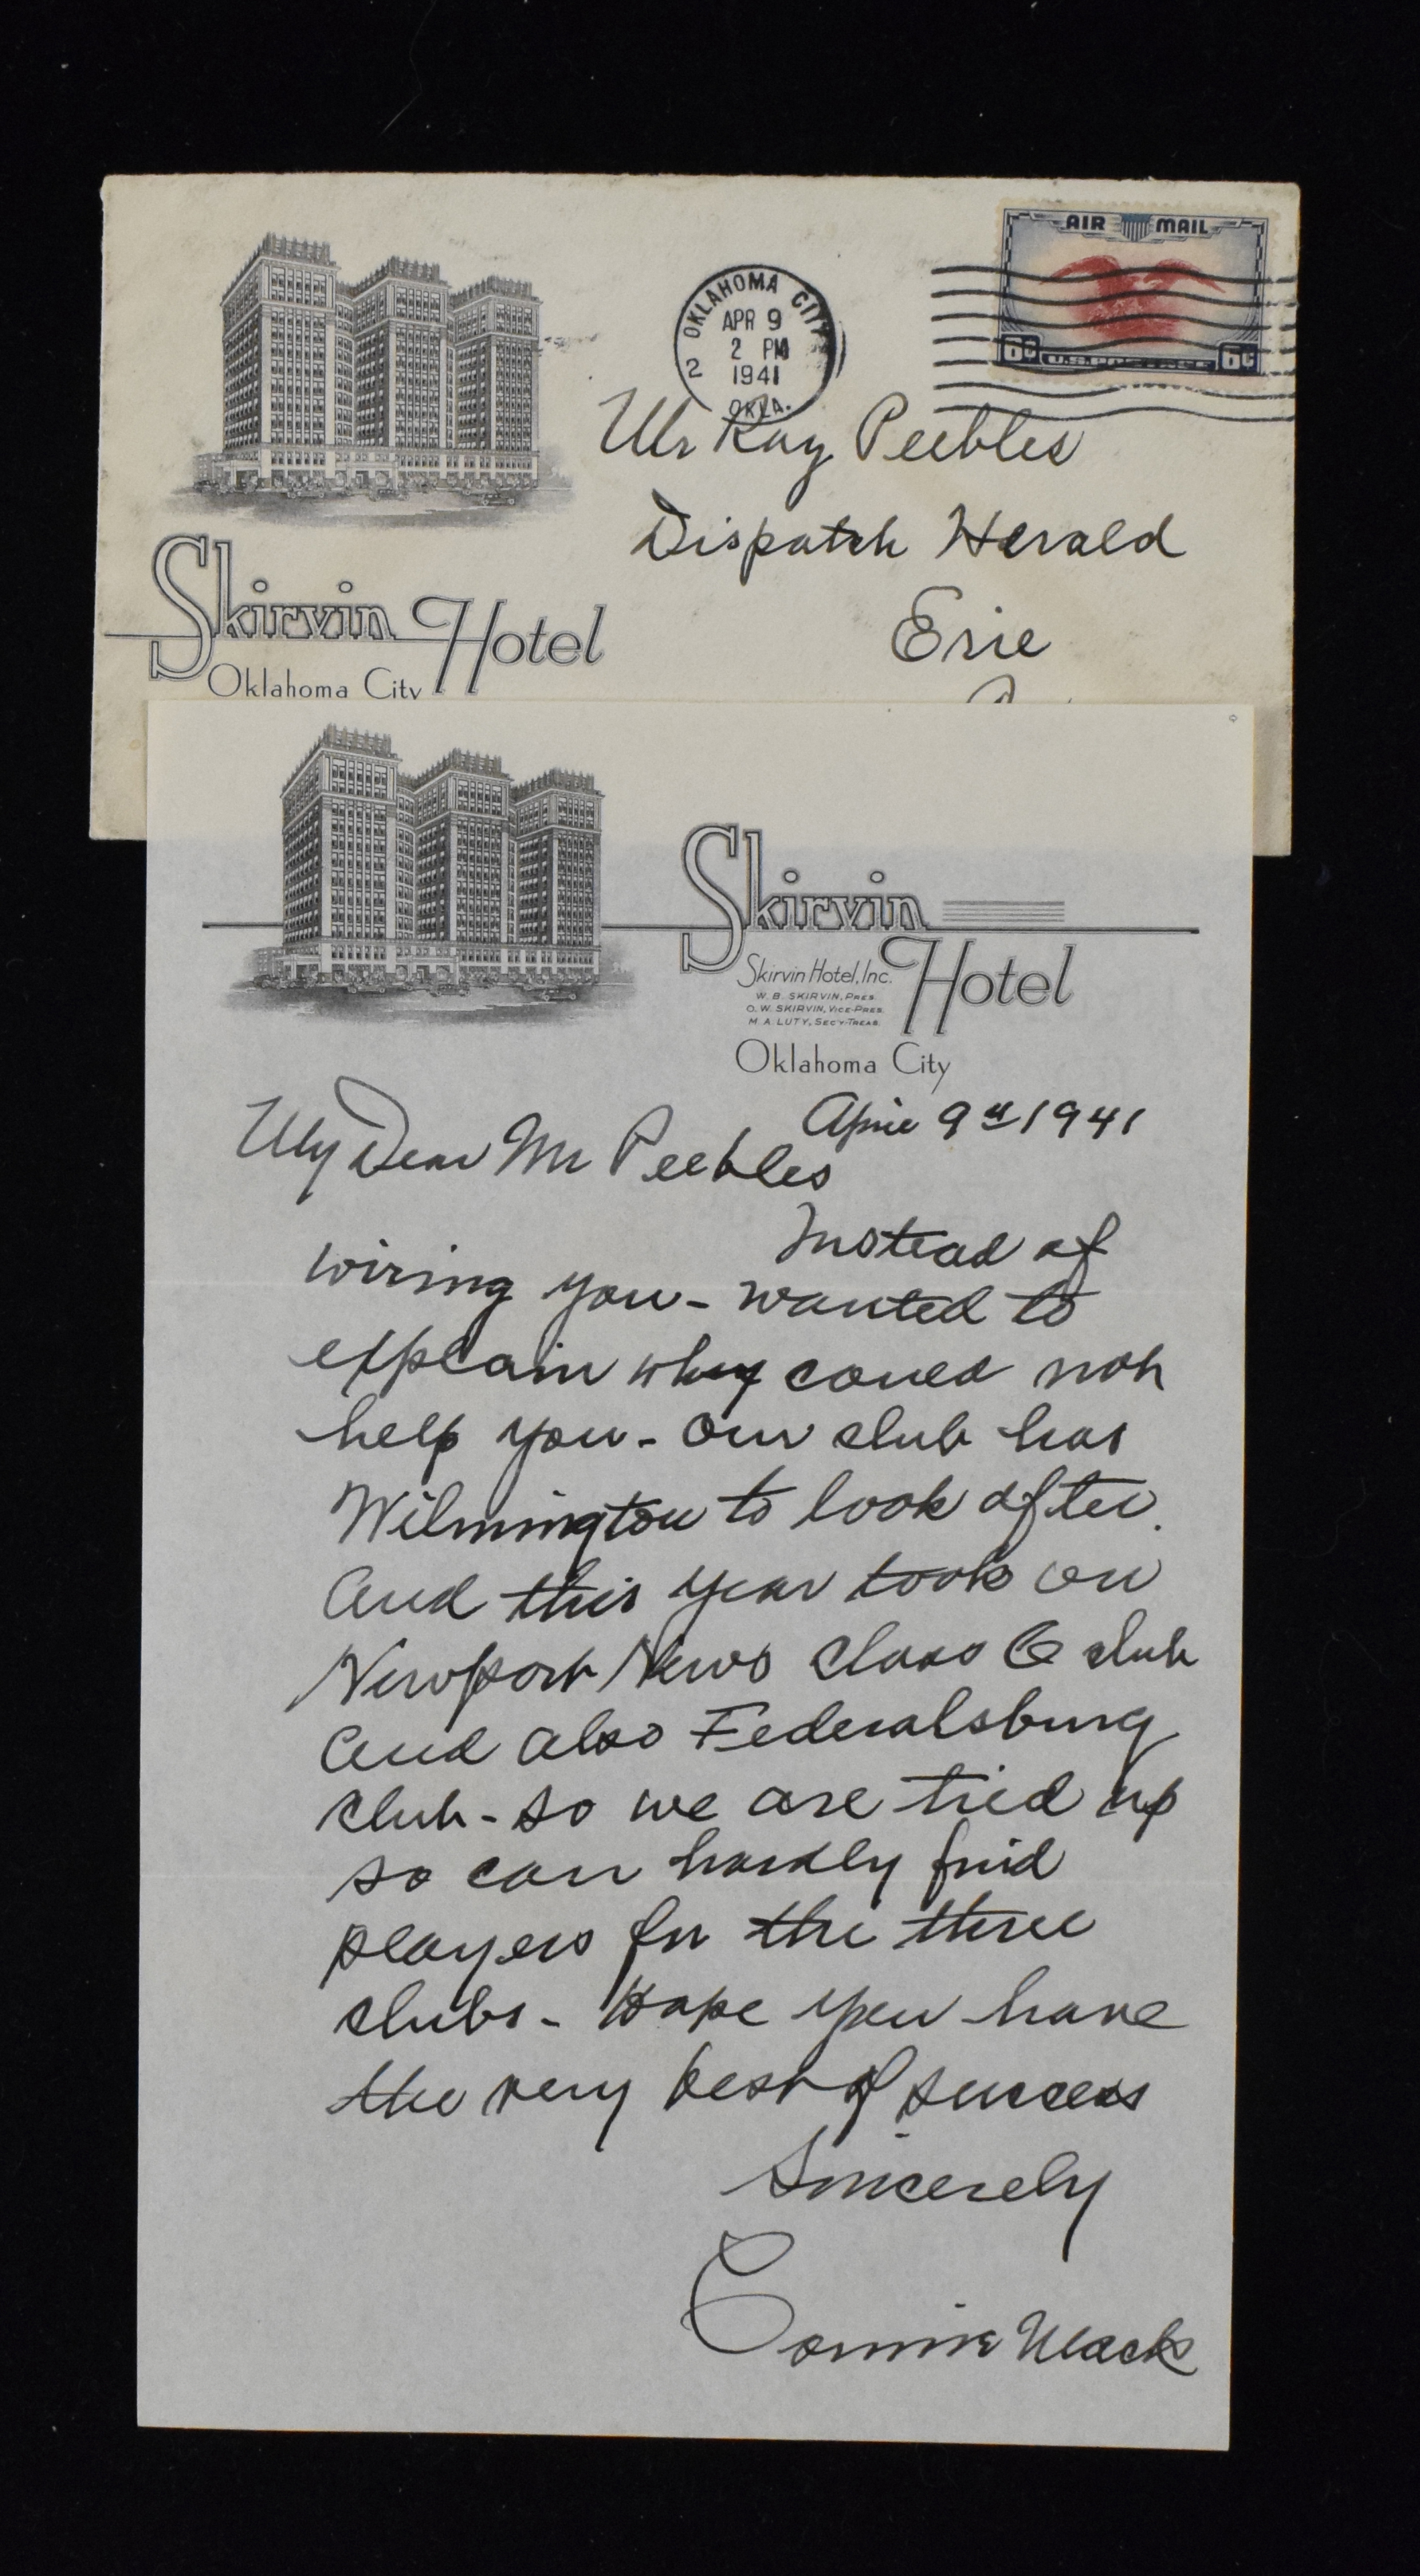 AIR MAIL
6¢ U.S. POSTAGE 6¢
OKLAHOMA CITY
APR 9
2 PM
1941
2
OKLA.
Mr Ray Peebles
Dispatch Herald
Erie
Skirvin Hotel
Oklahoma City
Skirvin
Hotel
Skirvin Hotel, Inc.
W. B. SKIRVIN, PRES.
O. W. SKIRVIN, VICE-PRES.
M. A. LUTY, SECY-TREAS.
Oklahoma City
April 9th 1941
My Dear Mr Peebles
Instead of
wiring you - wanted to
explain why could not
help you - Our club has
Wilmington to look after.
And this year took on
Newport News Class C club
And also Federalsburg
club - so we are tied up
so can hardly find
players for the three
clubs - Hope you have
the very best of success
Sincerely
Connie Mack